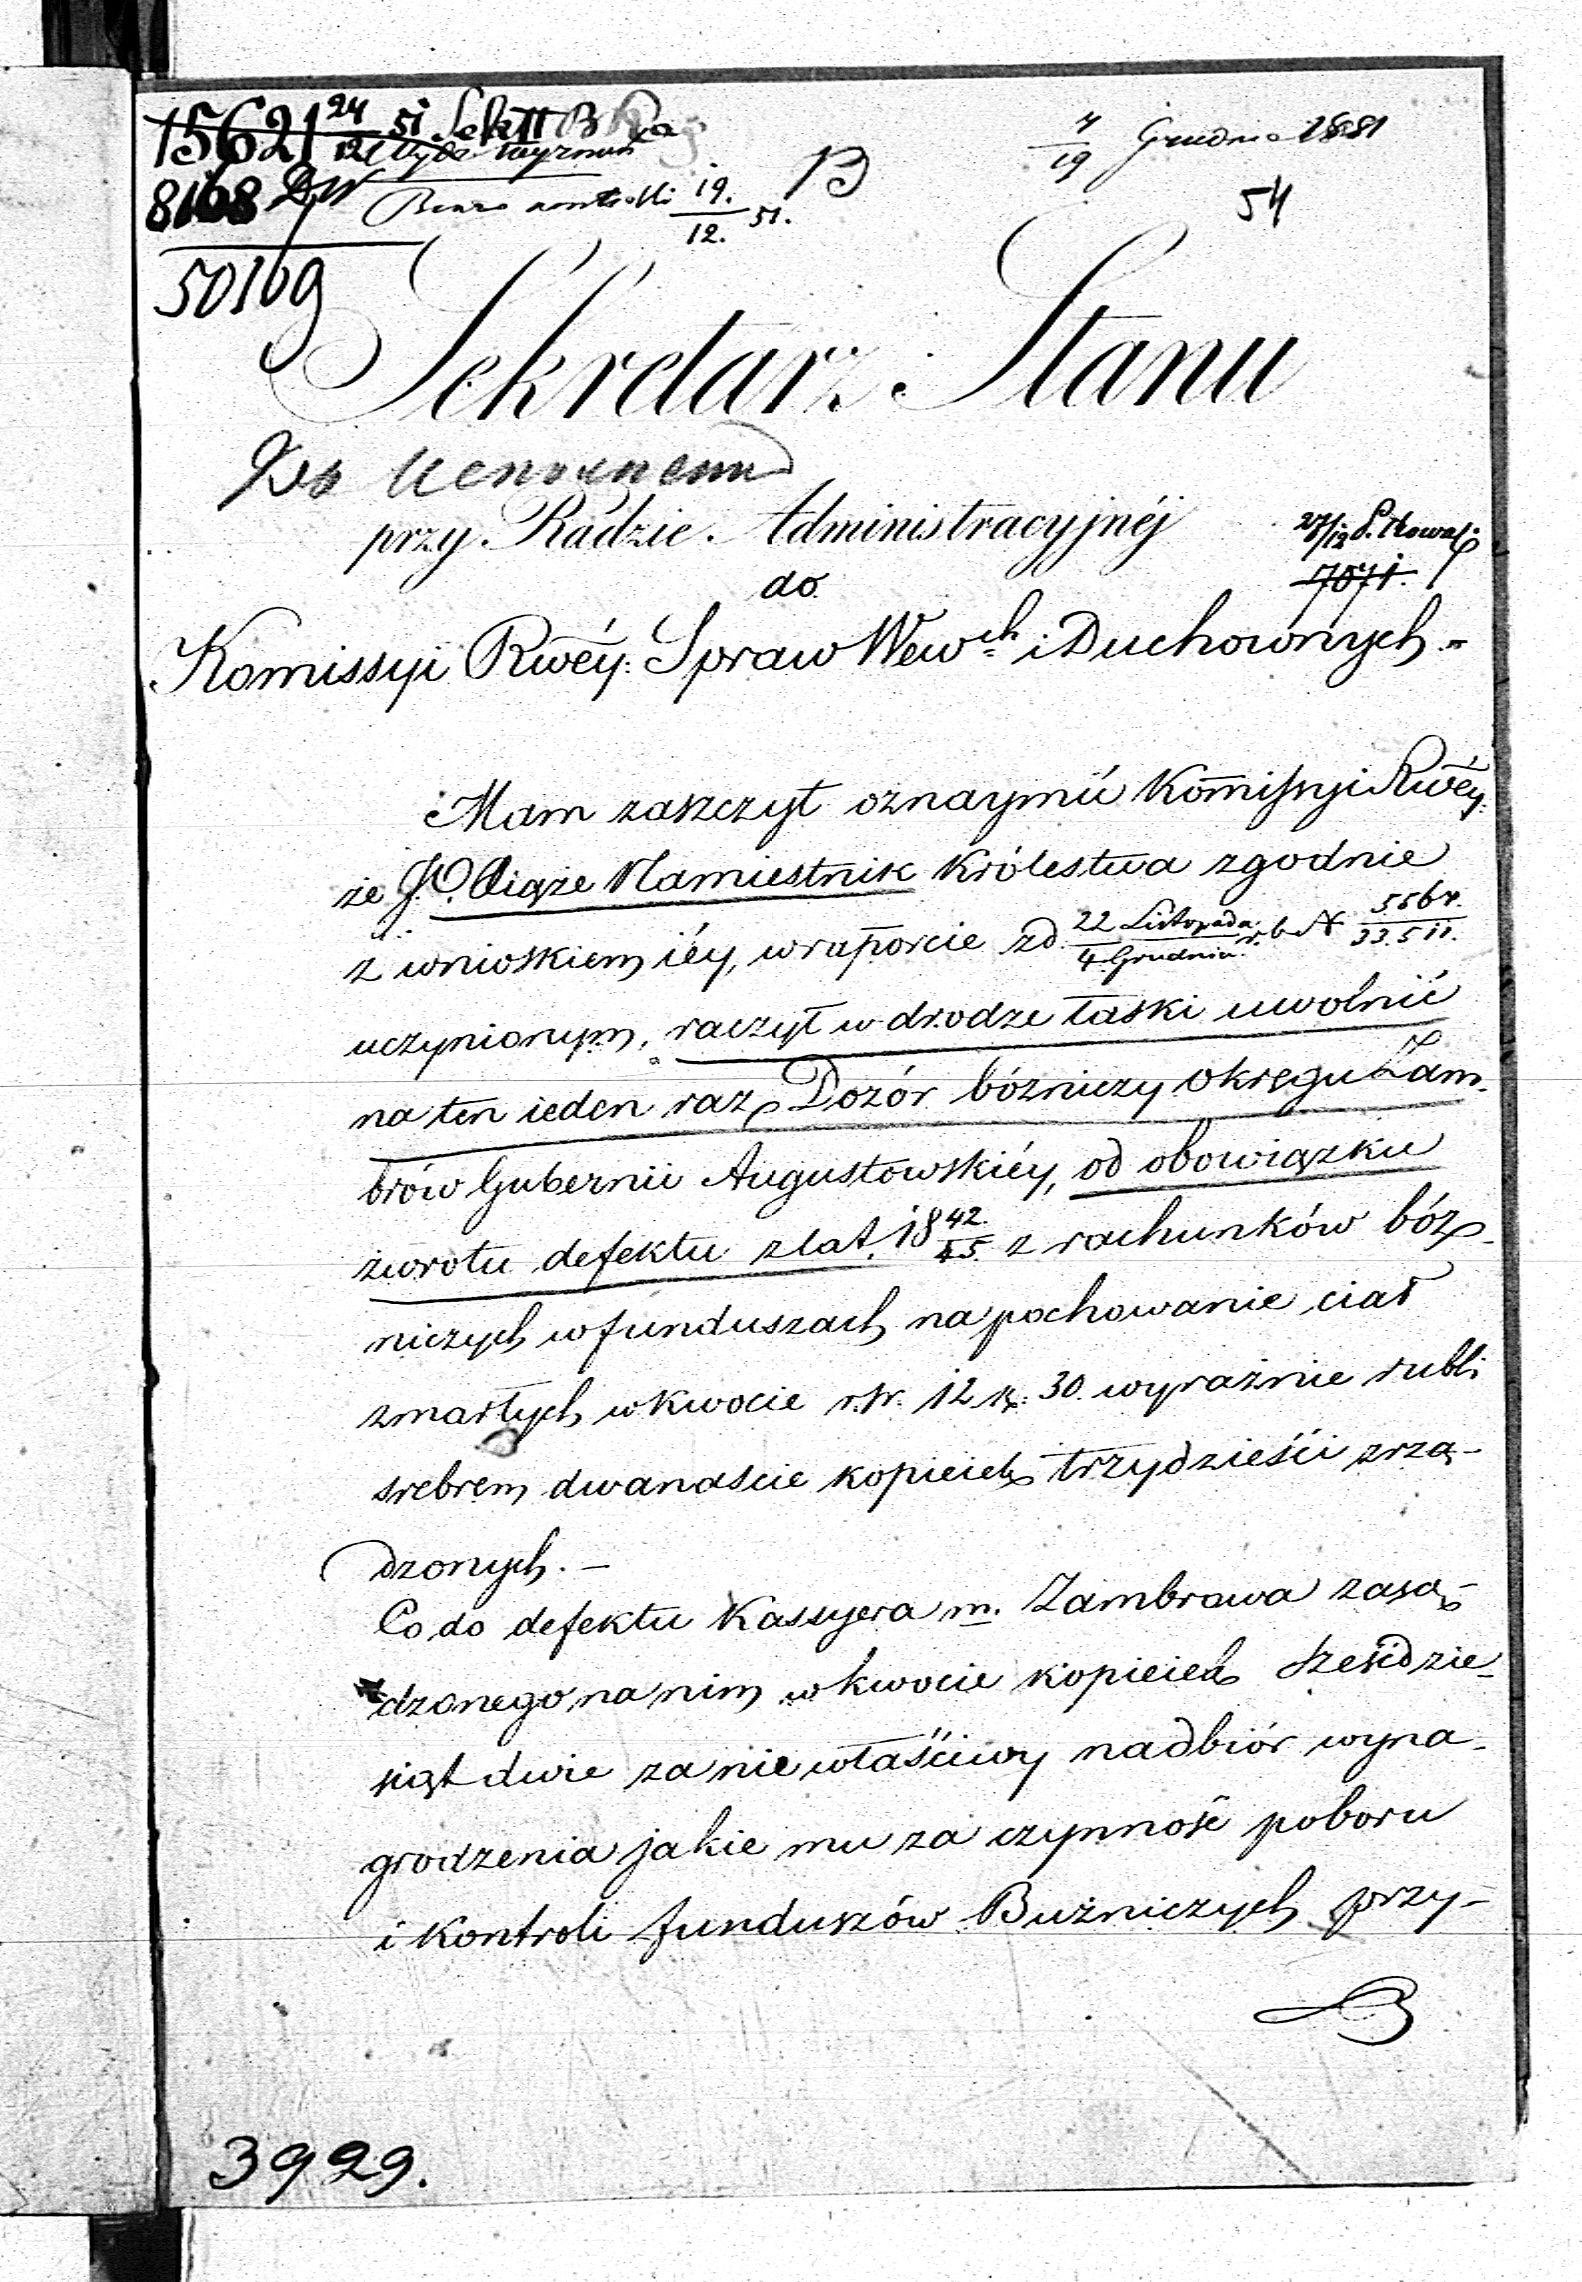 15621 24/12 51 Sek II B
8168 DW
19./12. 51. B
7/19 Grudnia 1851
54
50169
Sekretarz Stanu
przy Radzie Administracyjnéj
27/12
7071.
do
Komissyi Rwéy: Spraw Wewch i Duchownych.-
Mam zaszczyt oznaymić Komissyi Rwéy:
że J.O. Xiąże Namiestnik Królestwa zgodnie
z wnioskiem iéy, w raporcie z d. 22 Listopada/4 Grudnia r. b. N 5564./33.511.
uczynionym, raczył w drodze łaski uwolnić
na ten ieden raz Dozór bózniczy Okręgu Zam-
brów Gubernii Augustowskiéy, od obowiązku
zwrotu defektu z lat 18 42./45. z rachunków bóż-
niczych w funduszach na pochowanie ciał
zmarłych w kwocie r. sr. 12 k. 30. wyraźnie rubli
srebrem dwanaście kopieiek trzydzieści zrzą-
dzonych.-
Co do defektu Kassyera m. Zambrowa zasą-
dzonego na nim w kwocie kopieiek sześćdzie-
siąt dwie za niewłaściwy nadbiór wyna-
grodzenia jakie mu za czynność poboru
i kontroli funduszów Bużniczych przy-
3929.